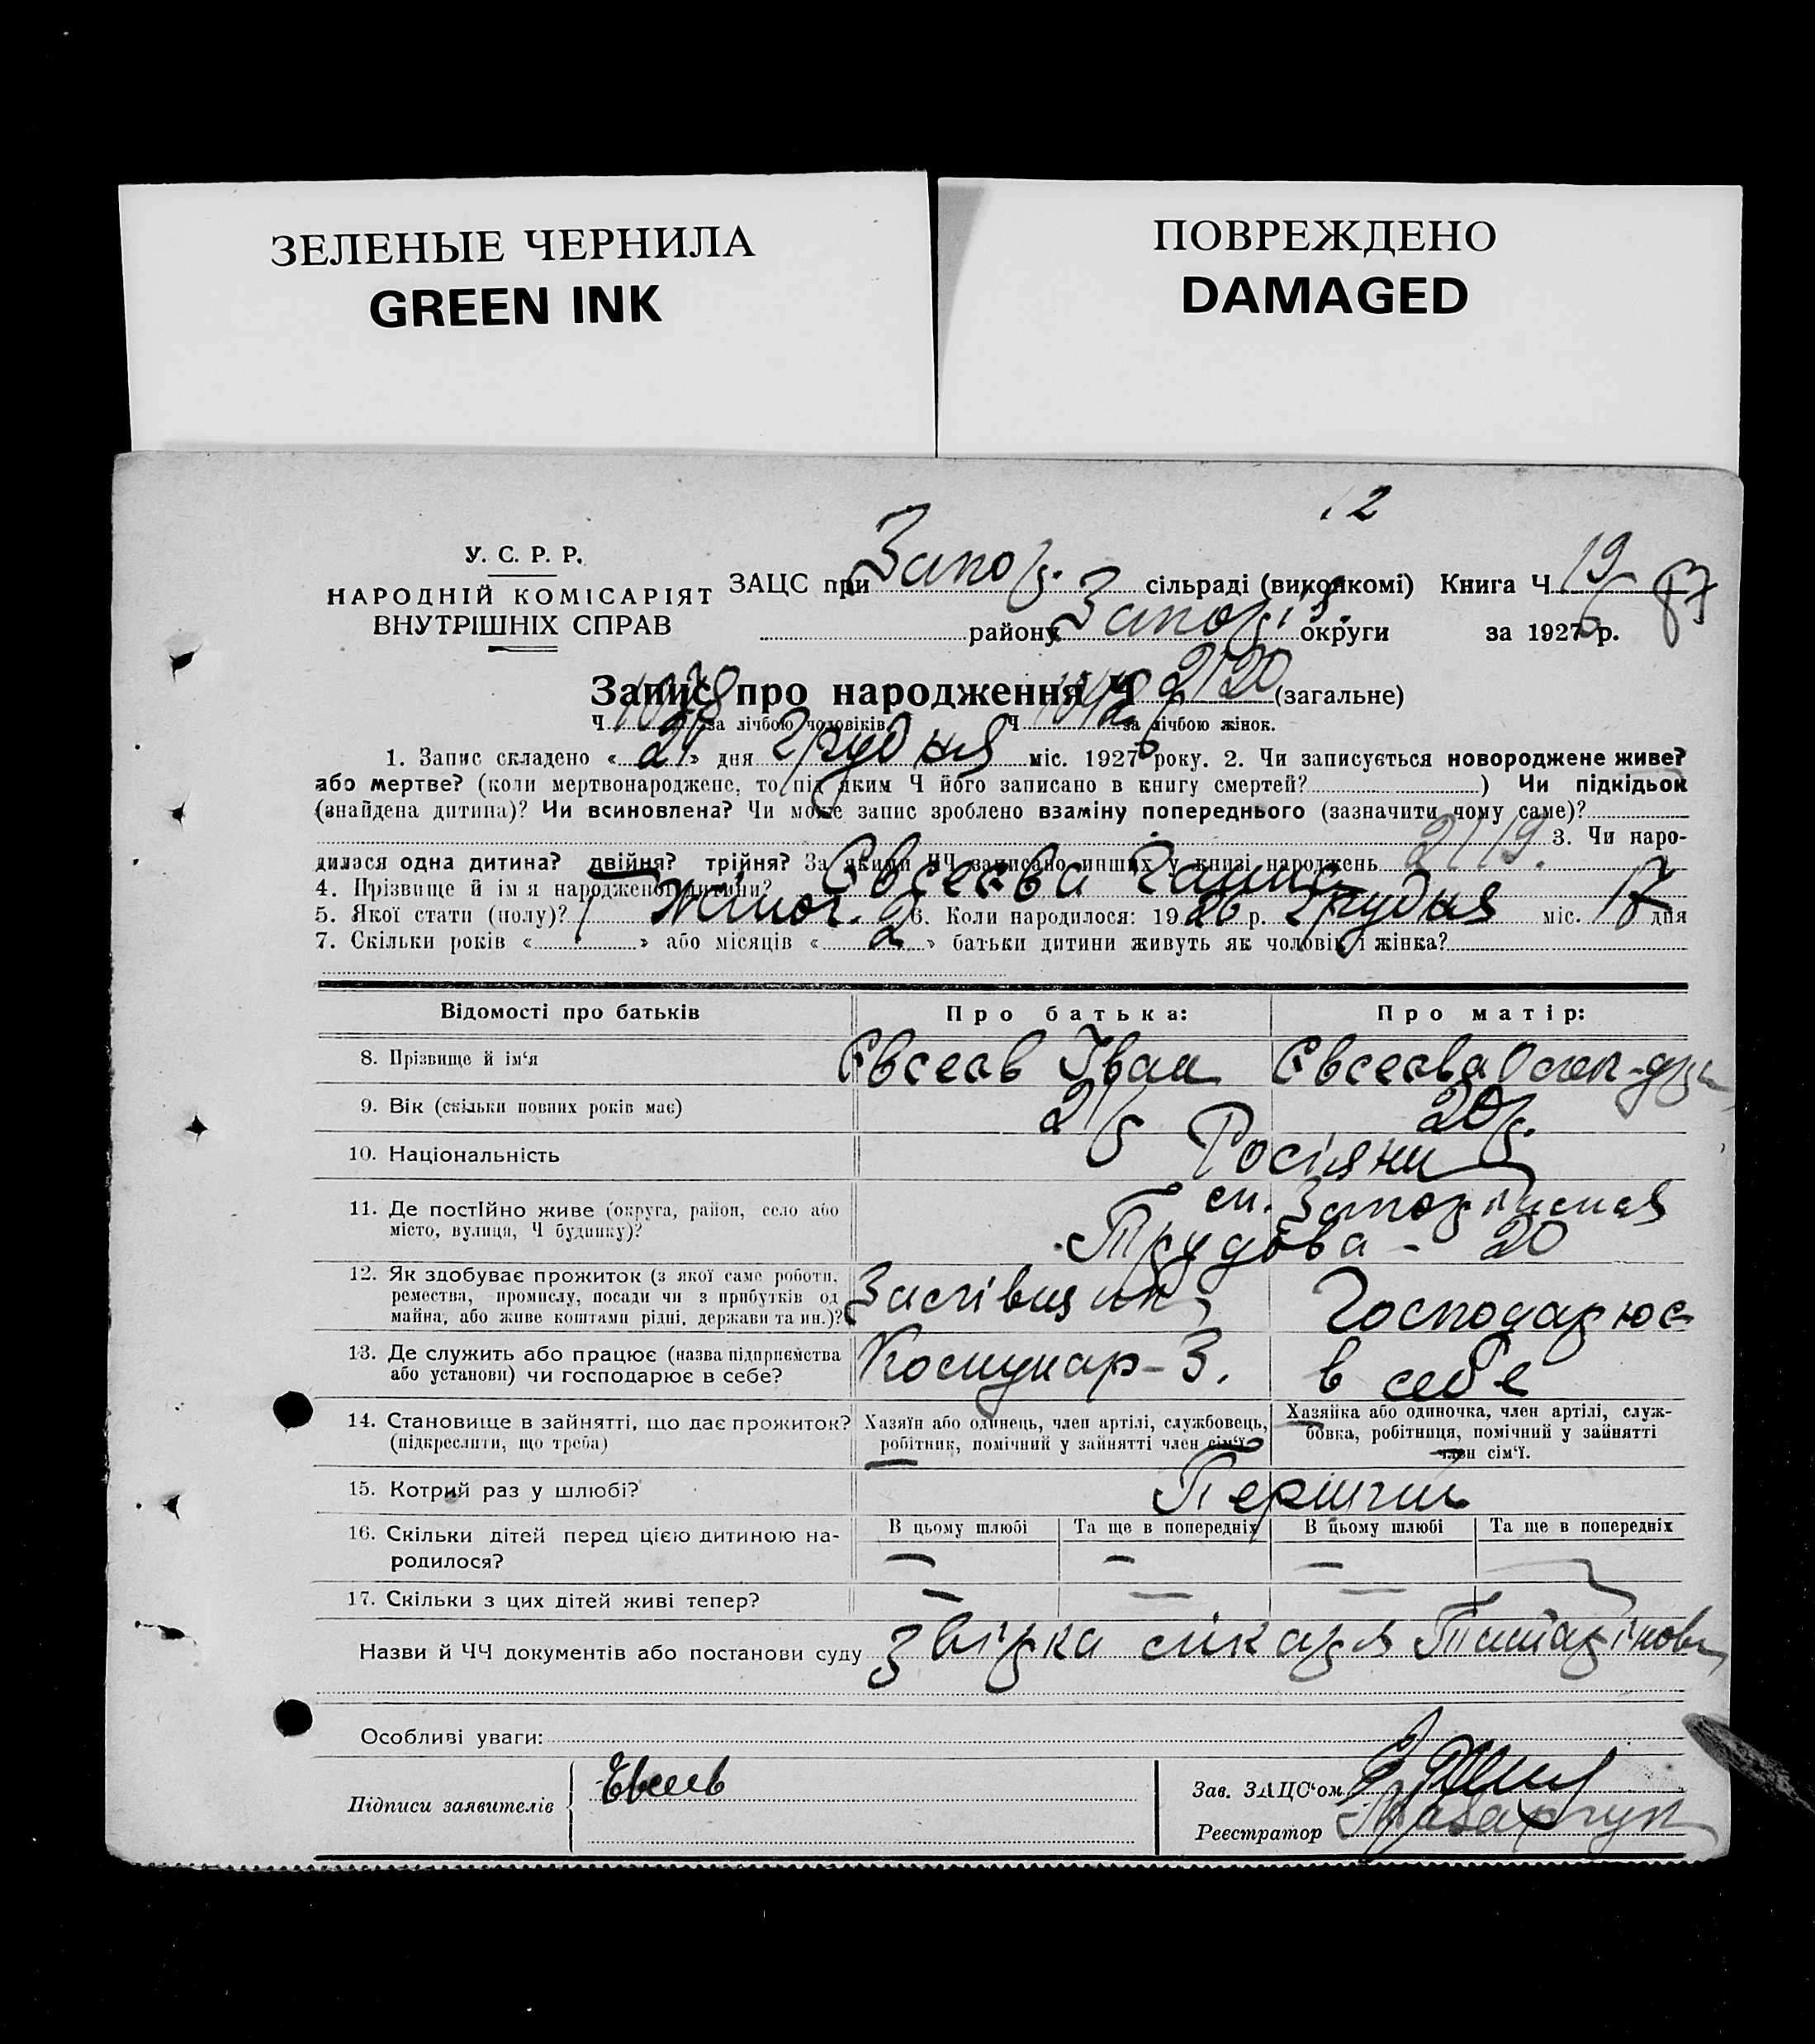 ЗЕЛЕНЫЕ ЧЕРНИЛА
GREEN INK
ПОВРЕЖДЕНО
DAMAGED
12
У. С. Р. Р.
НАРОДНІЙ КОМІСАРІЯТ
ВНУТРІШНІХ СПРАВ
ЗАЦС при Запор. сільраді (виконкомі) Книга Ч 19 87
району Запоріз. округи за 1926 р.
Запис про народження Ч 2120 (загальне)
Ч за лічбою чоловіків Ч за лічбою жінок.
1. Запис складено « 21 » дня Грудня міс. 1926 року. 2. Чи записується новороджене живе?
або мертве? (коли мертвонароджене, то під яким Ч його записано в книгу смертей? ) Чи підкідьок
(знайдена дитина)? Чи всиновлена? Чи може запис зроблено взаміну попереднього (зазначити чому саме)?
3. Чи наро-
дилася одна дитина? двійня? трійня? За якими ЧЧ записано инших у книзі народжень 2119.
4. Прізвище й ім я народженої дитини? Євсеєва Ганна
5. Якої стати (полу)? Жіноч. 6. Коли народилося: 1926 р. Грудня міс. 17 дня
7. Скільки років « » або місяців « 2 » батьки дитини живуть як чоловік і жінка?
Відомості про батьків Про батька: Про матір:
8. Прізвище й ім'я Євсеєв Іван Євсеєва
9. Вік (скільки повних років має) 21 р 20 р.
10. Національність Росіяни
11. Де постійно живе (округа, район, село або
місто, вулиця, Ч будинку)? Трудова - 20
12. Як здобуває прожиток (з якої саме роботи,
ремества, промислу, посади чи з прибутків од
майна, або живе коштами рідні, держави та ин.)? Господарює
13. Де служить або працює (назва підприємства
або установи) чи господарює в себе? Комунар-З. в себе
14. Становище в зайнятті, що дає прожиток?
(підкреслити, що треба)
Хазяїн або одинець, член артілі, службовець,
робітник, помічний у зайнятті член сім'ї.
Хазяйка або одиночка, член артілі, служ-
бовка, робітниця, помічний у зайнятті
член сім'ї.
15. Котрий раз у шлюбі? Перший
16. Скільки дітей перед цією дитиною на-
родилося?
В цьому шлюбі Та ще в попередніх В цьому шлюбі Та ще в попередніх
— — —
17. Скільки з цих дітей живі тепер? — — —
Назви й ЧЧ документів або постанови суду
Особливі уваги:
Підписи заявителів Евсеев
Зав. ЗАЦС'ом
Реєстратор